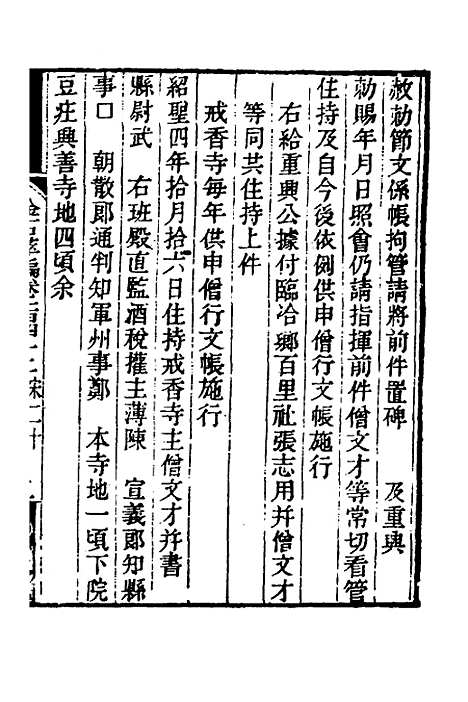 赦勑節文係帳拘管請將前件置碑　及重興
勑賜年月日照會仍請指揮前件僧文才等常切看管
住持及自今後依例供申僧行文帳施行
右給重興公據付臨冶鄉百里社張志用幷僧文才
等同共住持上件
戒香寺每年供申僧行文帳施行
紹聖四年拾月拾六日住持戒香寺主僧文才幷書
縣尉武　右班殿直監酒稅權主薄陳　宣義郎知縣
事口　朝散郎通判知軍州事鄭　本寺地一頃下院
豆疘興善寺地四頃余